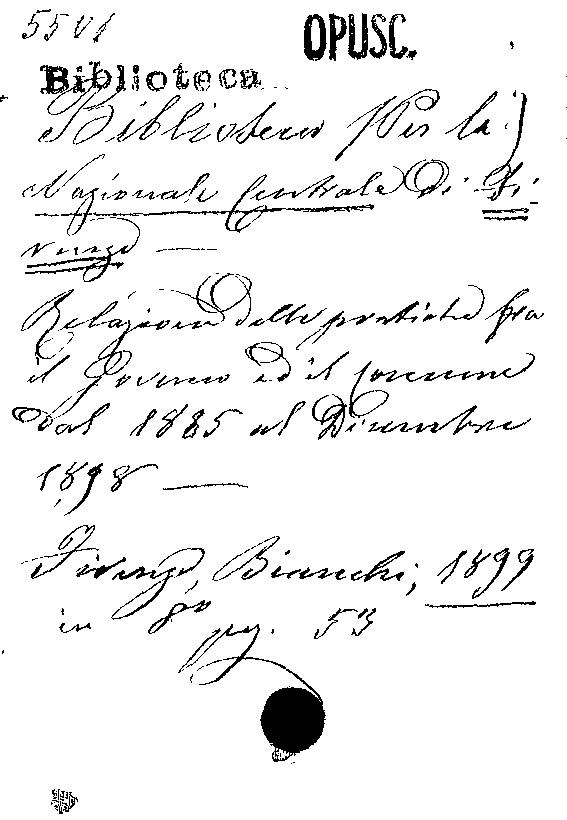 5501
OPUSC.
Biblioteca
Biblioteca (Per la)
Nazionale Centrale di Fi-
renze —
Relazione delle pratiche fra
il Governo ed il Comune
dal 1885 al Dicembre
1898 —
Firenze, Bianchi, 1899
in 8º pg. 53